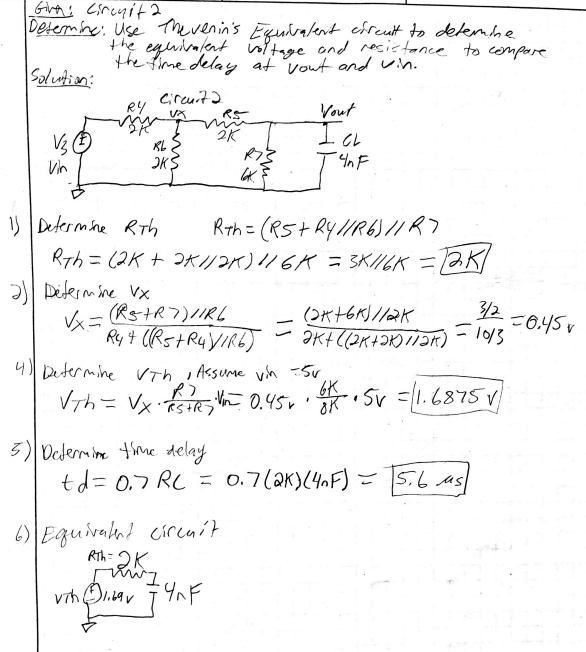 Given: Circuit 2
Determine: Use Thevenin's Equivalent circuit to determine
the equivalent voltage and resistance to compare
the time delay at Vout and Vin.
Solution:
Circuit 2
R4 Vx R5 Vout
2K 2K
V3 R6 R7 CL
Vin 2K 6K 4nF
1) Determine RTh RTh = (R5 + R4//R6)//R7
RTh = (2K + 2K//2K)//6K = 3K//6K = 2K
2) Determine Vx
Vx = (R5+R7)//R6 / R4 + ((R5+R4)//R6) = (2K+6K)//2K / 2K + ((2K+2K)//2K) = 3/2 / 10/3 = 0.45v
4) Determine VTh, Assume vin = 5v
VTh = Vx · R7 / R5+R7 · Vin = 0.45v · 6K / 8K · 5v = 1.6875 V
5) Determine time delay
td = 0.7 RC = 0.7(2K)(4nF) = 5.6 µs
6) Equivalent circuit
RTh = 2K
VTh 1.69v 4nF